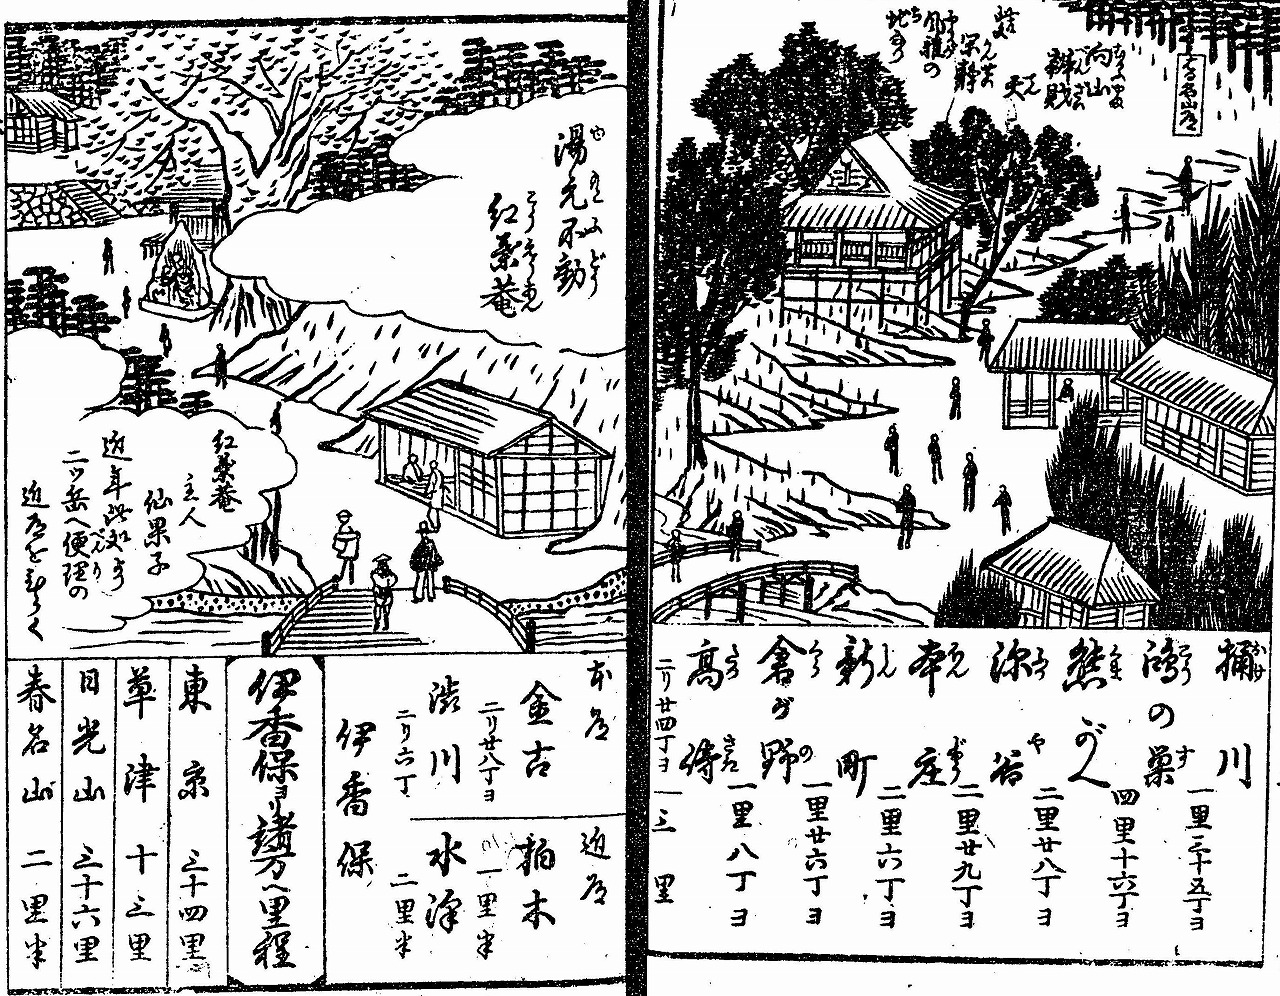 向山
辨財天
桶川
一里三十五丁ヨ
鴻の巣
四里十六丁ヨ
熊がへ
二里廿八丁ヨ
深谷
二里廿九丁ヨ
本庄
二里六丁ヨ
新町
一里廿六丁ヨ
倉が野
一里八丁ヨ
高崎
一三里
二リ廿四丁ヨ
湯元不動
紅葉菴
紅葉菴
主人
仙果子
近年
二ツ岳へ便理の
近道をひらく
本道
金古
二リ廿八丁ヨ
渋川
二リ六丁
近道
柏木
一里半
水澤
二里半
伊香保
伊香保ヨリ諸方へ里程
東京 三十四里
草津 十三里
日光山 三十六里
春名山 二里半